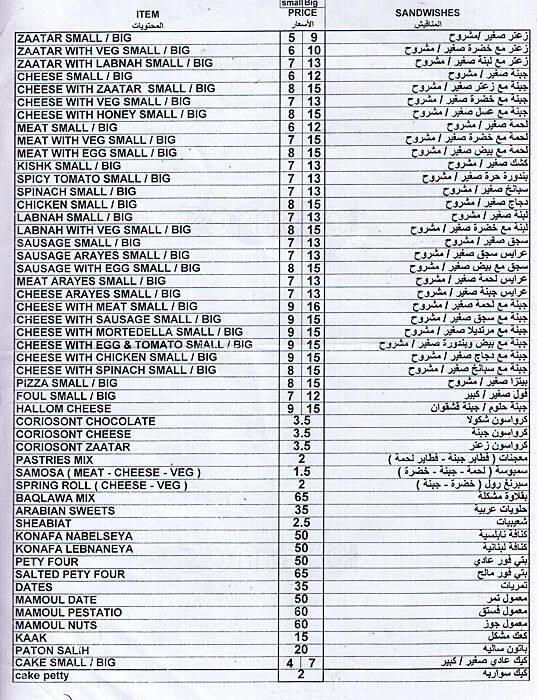 small Big
ITEM PRICE SANDWISHES
المحتويات الأسعار المناقيش
ZAATAR SMALL / BIG 5 9 زعتر صغير / مشروح
ZAATAR WITH VEG SMALL / BIG 6 10 زعتر مع خضرة صغير / مشروح
ZAATAR WITH LABNAH SMALL / BIG 7 13 زعتر مع لبنة صغير / مشروح
CHEESE SMALL / BIG 6 12 جبنة صغير / مشروح
CHEESE WITH ZAATAR SMALL / BIG 8 15 جبنة مع زعتر صغير / مشروح
CHEESE WITH VEG SMALL / BIG 7 13 جبنة مع خضرة صغير / مشروح
CHEESE WITH HONEY SMALL / BIG 8 15 جبنة مع عسل صغير / مشروح
MEAT SMALL / BIG 6 12 لحمة صغير / مشروح
MEAT WITH VEG SMALL / BIG 7 15 لحمة مع خضرة صغير / مشروح
MEAT WITH EGG SMALL / BIG 8 15 لحمة مع بيض صغير / مشروح
KISHK SMALL / BIG 7 13 كشك صغير / مشروح
SPICY TOMATO SMALL / BIG 7 13 بندورة حرة صغير / مشروح
SPINACH SMALL / BIG 7 13 سبانخ صغير / مشروح
CHICKEN SMALL / BIG 8 15 دجاج صغير / مشروح
LABNAH SMALL / BIG 7 13 لبنة صغير / مشروح
LABNAH WITH VEG SMALL / BIG 8 15 لبنة مع خضرة صغير / مشروح
SAUSAGE SMALL / BIG 7 13 سجق صغير / مشروح
SAUSAGE ARAYES SMALL / BIG 7 13 عرايس سجق صغير / مشروح
SAUSAGE WITH EGG SMALL / BIG 8 15 سجق مع بيض صغير / مشروح
MEAT ARAYES SMALL / BIG 7 13 عرايس لحمة صغير / مشروح
CHEESE ARAYES SMALL / BIG 7 13 عرايس جبنة صغير / مشروح
CHEESE WITH MEAT SMALL / BIG 9 16 جبنة مع لحمة صغير / مشروح
CHEESE WITH SAUSAGE SMALL / BIG 9 15 جبنة مع سجق صغير / مشروح
CHEESE WITH MORTEDELLA SMALL / BIG 9 15 جبنة مع مرتديلا صغير / مشروح
CHEESE WITH EGG & TOMATO SMALL / BIG 9 15 جبنة مع بيض وبندورة صغير / مشروح
CHEESE WITH CHICKEN SMALL / BIG 9 15 جبنة مع دجاج صغير / مشروح
CHEESE WITH SPINACH SMALL / BIG 8 15 جبنة مع سبانخ صغير / مشروح
PIZZA SMALL / BIG 8 15 بيتزا صغير / مشروح
FOUL SMALL / BIG 7 12 فول صغير / كبير
HALLOM CHEESE 9 15 جبنة حلوم / جبنة قشقوان
CORIOSONT CHOCOLATE 3.5 كرواسون شكولا
CORIOSONT CHEESE 3.5 كرواسون جبنة
CORIOSONT ZAATAR 3.5 كرواسون زعتر
PASTRIES MIX 2 معجنات ( فطاير جبنة - فطاير لحمة )
SAMOSA ( MEAT - CHEESE - VEG ) 1.5 سمبوسة ( لحمة - جبنة - خضرة )
SPRING ROLL ( CHEESE - VEG ) 2 سبرنغ رول ( خضرة - جبنة )
BAQLAWA MIX 65 بقلاوة مشكلة
ARABIAN SWEETS 35 حلويات عربية
SHEABIAT 2.5 شعيبيات
KONAFA NABELSEYA 50 كنافة نابلسية
KONAFA LEBNANEYA 50 كنافة لبنانية
PETY FOUR 50 بتي فور عادي
SALTED PETY FOUR 65 بتي فور مالح
DATES 35 تمريات
MAMOUL DATE 50 معمول تمر
MAMOUL PESTATIO 60 معمول فستق
MAMOUL NUTS 60 معمول جوز
KAAK 15 كعك مشكل
PATON SALIH 20 باتون ساليه
CAKE SMALL / BIG 4 7 كيك عادي صغير / كبير
cake petty 2 كيك سواريه